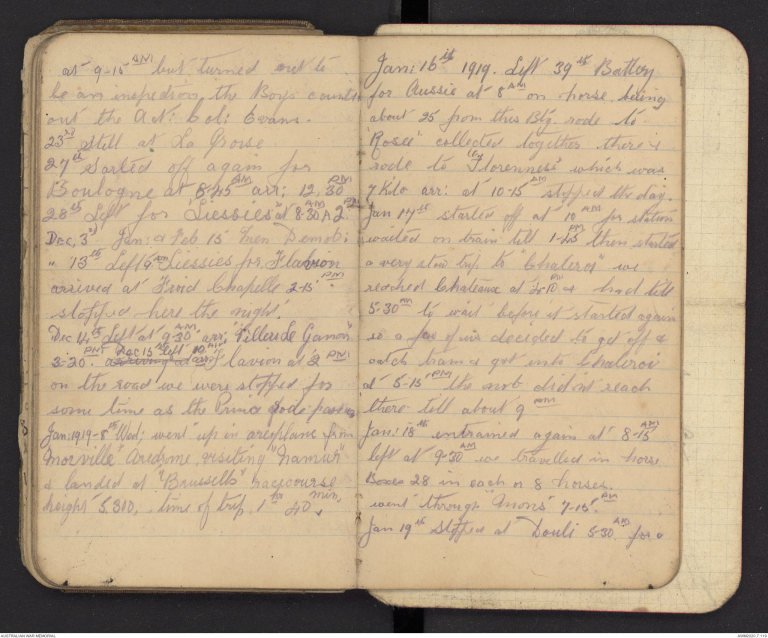 at 9-15 AM but turned out to
be an inspection, the Boys counted
out the Act: Col: Evans.
23rd still at La Groise
27th started off again for
Boulogne at 8-45 AM arr: 12.30 PM
28th Left for "Liessies" at 8-30 AM 2 PM
Dec, 3rd Jan: & Feb 15 men Demob:
" 13th Left 9 AM Liessies for Flavion
arrived at Froid Chapelle 2-15 PM
stopped here the night.
Dec 14th Left at 9-30 AM arr; "Villers Le Gambon"
3-20 PM. Dec 15th left 10 AM
arr: Flavion at 2 PM
on the road we were stopped for
some time as the Prince rode passed
Jan: 1919 - 8th Wed; went up in areoplane from
"Morville" Aredrome, visiting "Namur"
& landed at "Brussells" racecourse
height 5,300, time of trip 1 hr 40 min,
Jan: 16th 1919. Left 39th Battery
for Aussie at 8 AM on horse, being
about 25 from this Bty. rode to
"Rosee" collected together there &
rode to "Florennes" which was
7 Kilo arr: at 10-15 AM stopped the day.
Jan 17th started off at 10 AM for station
waited on train till 1-45 PM then started
a very slow trip to "Chaleroi" we
reached Chateaux at & had till
5-30 PM to wait before it started again
so a few of us decided to get off &
catch tram & got into Chaleroi
at 5-15 PM the mob didn't reach
there till about 9 PM
Jan: 18th entrained again at 8-15 AM
left at 9-30 AM we travelled in horse
Boxes 28 in each or 8 horses.
went through "Mons" 7-15 PM
Jan 19th Stopped at Douli 5-30 AM for a
AUSTRALIAN WAR MEMORIAL
AWM2020.7.119